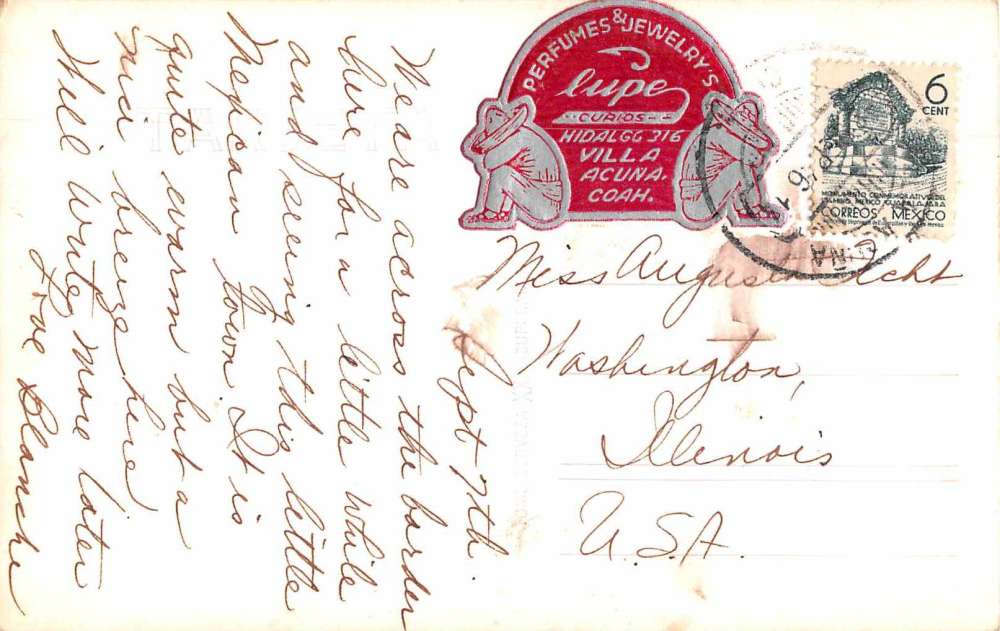 Sept 7th.
We are across the border
here for a little while
and seeing this little
Mexican town. It is
quite warm but a
nice breeze here
Will write more later
Love Blanche
PERFUMES & JEWELRY'S
Lupe
CURIOS
HIDALGO 216
VILLA
ACUNA.
COAH.
6
CENT
MONUMENTO CONMEMORATIVO DEL
CAMINO MEXICO GUADALAJARA
CORREOS MEXICO
Miss Augusta Acht
Washington,
Illinois
U.S.A.